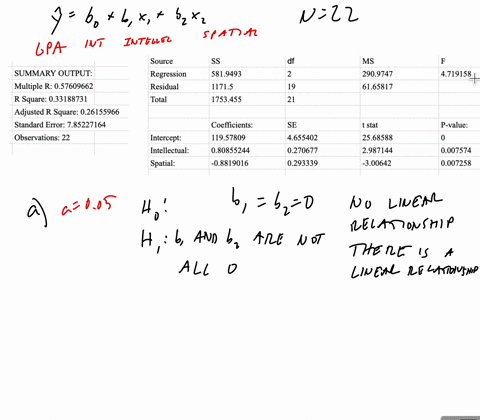 ŷ = b₀ + b₁x₁ + b₂x₂   N=22
GPA INT INTELLEC SPATIAL
SUMMARY OUTPUT:
Multiple R: 0.57609662
R Square: 0.33188731
Adjusted R Square: 0.26155966
Standard Error: 7.85227164
Observations: 22
Source SS df MS F
Regression 581.9493 2 290.9747 4.719158
Residual 1171.5 19 61.65817
Total 1753.455 21
Coefficients: SE t stat P-value:
Intercept: 119.57809 4.655402 25.68588 0
Intellectual: 0.80855244 0.270677 2.987144 0.007574
Spatial: -0.8819016 0.293339 -3.00642 0.007258
a) a=0.05
H₀: b₁ = b₂ = 0
NO LINEAR
RELATIONSHIP
H₁: b₁ AND b₂ ARE NOT
ALL 0
THERE IS A
LINEAR RELATIONSHIP